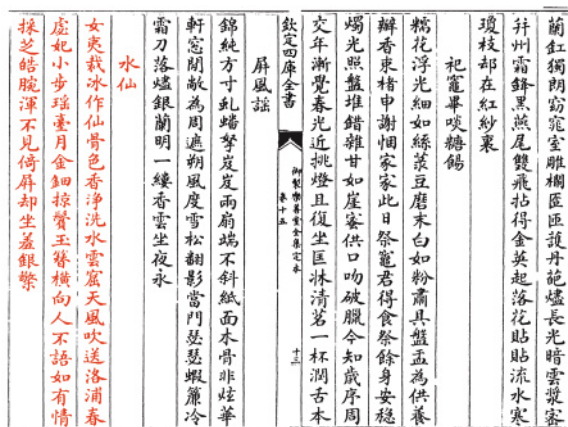 蘭釭獨朗窈窕室雕櫊匼匝護丹葩爐長光暗雲漿密
幷州霜鋒黑燕尾雙飛拈得金英起落花貼貼流水寒
瓊枝却在紅紗裏
祀竈畢啖糖餳
糯花浮光細如絲菉豆磨末白如粉肅具盤盂為供養
辮香束楮申謝悃家家此日祭竈君得食祭餘身安穩
燭光照盤堆錯雜甘如崖蜜供口吻破臘今知歲序周
交年漸覺春光近挑燈且復坐匡牀清茗一杯潤舌本
欽定四庫全書
御製樂善堂全集定本
卷十五
十三
屏風謡
錦純方寸虬蟠拏岌岌兩扇端不斜紙面木骨非炫華
軒窓閒敞為周遮朔風度雪松翻影當門瑟瑟蝦簾冷
霜刀落燼銀蘭明一縷香雲坐夜永
水仙
女夷裁冰作仙骨色香淨洗水雲窟天風吹送洛浦春
虙妃小步瑶臺月金鈿掠鬢玉簪橫向人不語如有情
採芝皓腕渾不見倚屏却坐羞銀檠